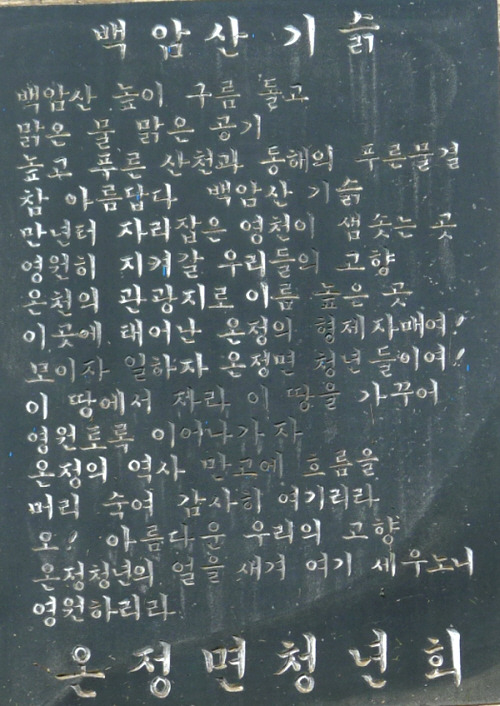 백암산기슭
백암산 높이 구름 돌고
맑은 물 맑은 공기
높고 푸른 산천과 동해의 푸른물결
참 아름답다 백암산 기슭
만년터 자리잡은 영천이 샘솟는 곳
영원히 지켜갈 우리들의 고향
온천의 관광지로 이름 높은 곳
이곳에 태어난 온정의 형제자매여!
모이자 일하자 온정면 청년들이여!
이 땅에서 자라 이 땅을 가꾸어
영원토록 이어나가자
온정의 역사 만고에 흐름을
머리 숙여 감사히 여기리라
오! 아름다운 우리의 고향
온정청년의 얼을 새겨 여기 세우노니
영원하리라
온정면청년회